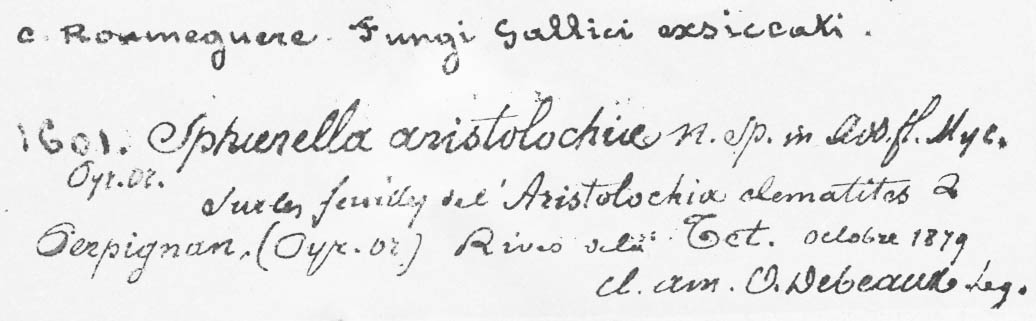 C. Roumeguere. Fungi Gallici exsiccati.
1601. Sphærella aristolochiæ n. sp. in fl. Myc.
Pyr. or.
Sur les feuilles de l'Aristolochia clematites
Perpignan. (Pyr. or) Rives de la Tet. octobre 1879
cl. am. O. Debeaux Leg.